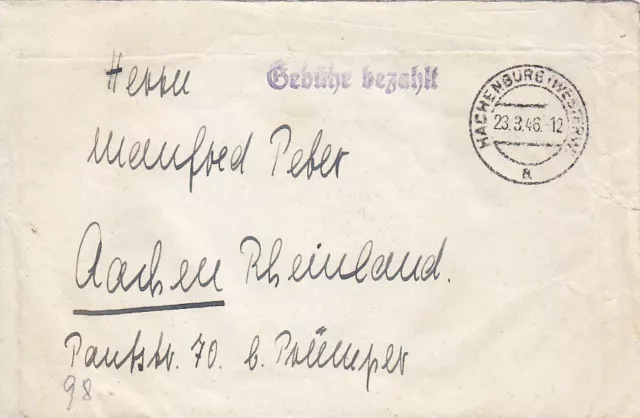 Herrn
Gebühr bezahlt
HACHENBURG (WESTERW)
23.3.46.-12
a
Manfred Peter
Aachen Rheinland.
70 b.
98